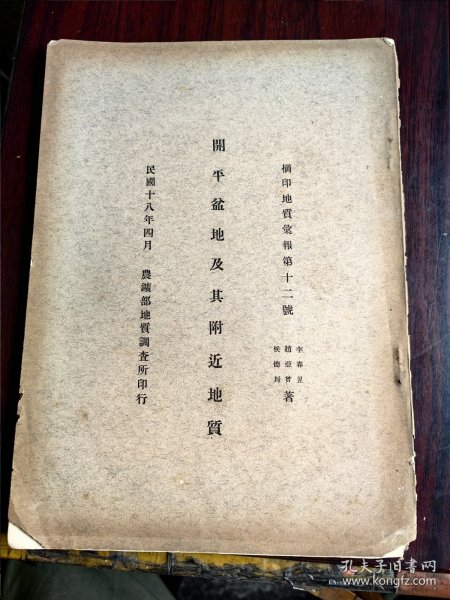 摘印地質彙報第十二號
李春昱
趙亞曾
侯德封
著
開平盆地及其附近地質
民國十八年四月 農鑛部地質調查所印行
孔夫子旧书网
www.kongfz.com